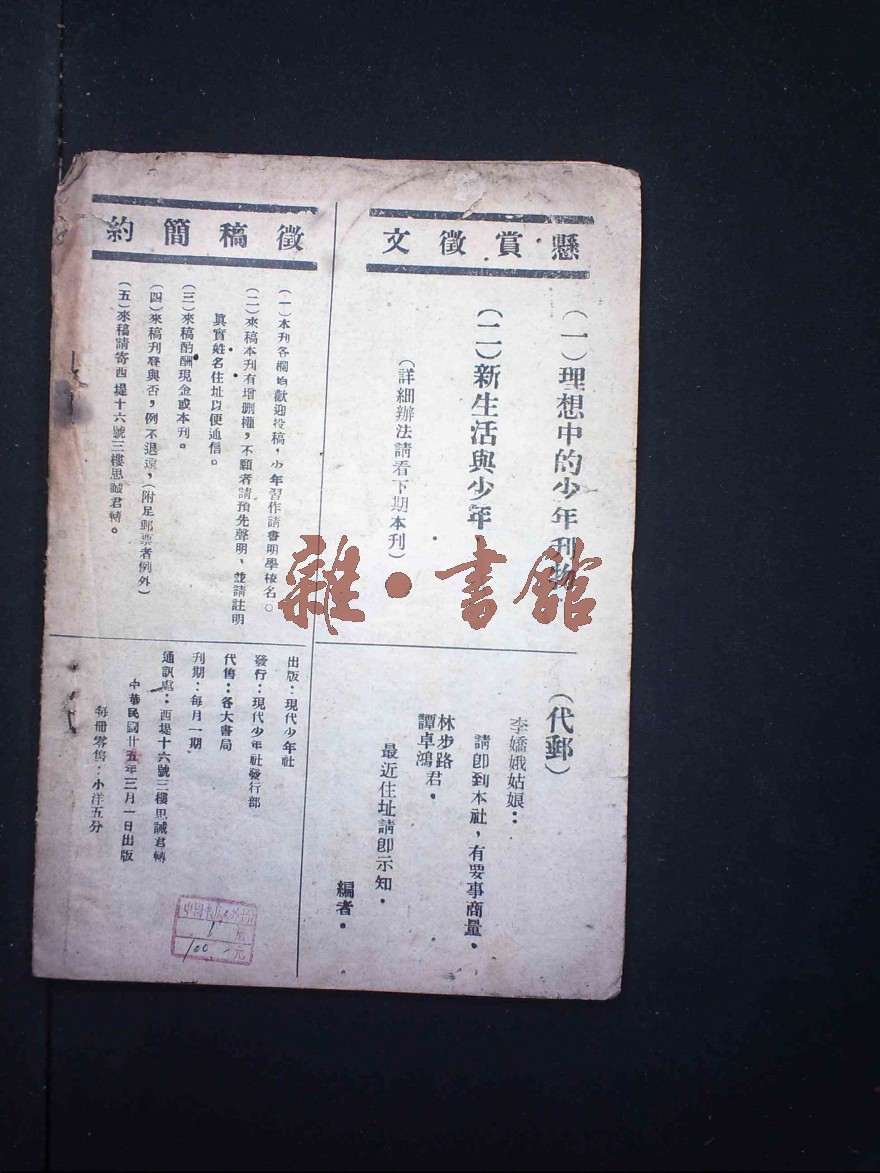 懸賞徵文
(一)理想中的少年刊物
(二)新生活與少年
(詳細辦法請看下期本刊)
(代郵)
李嬌娥姑娘：
請卽到本社，有要事商量。
林步路
譚卓鴻君。
最近住址請卽示知。
編者。
徵稿簡約
(一)本刊各欄均歡迎投稿，少年習作請書明學校名。
(二)來稿本刊有增删權，不願者請預先聲明，並請註明
眞實姓名住址以便通信。
(三)來稿酌酬現金或本刊。
(四)來稿刊登與否，例不退還，(附足郵票者例外)
(五)來稿請寄西堤十六號三樓思誠君轉。
出版：現代少年社
發行：現代少年社發行部
代售：各大書局
刊期：每月一期
通訊處：西堤十六號三樓思誠君轉
中華民國廿五年三月一日出版
每冊零售：小洋五分
中國書店
册
1
100
元
雜·書館